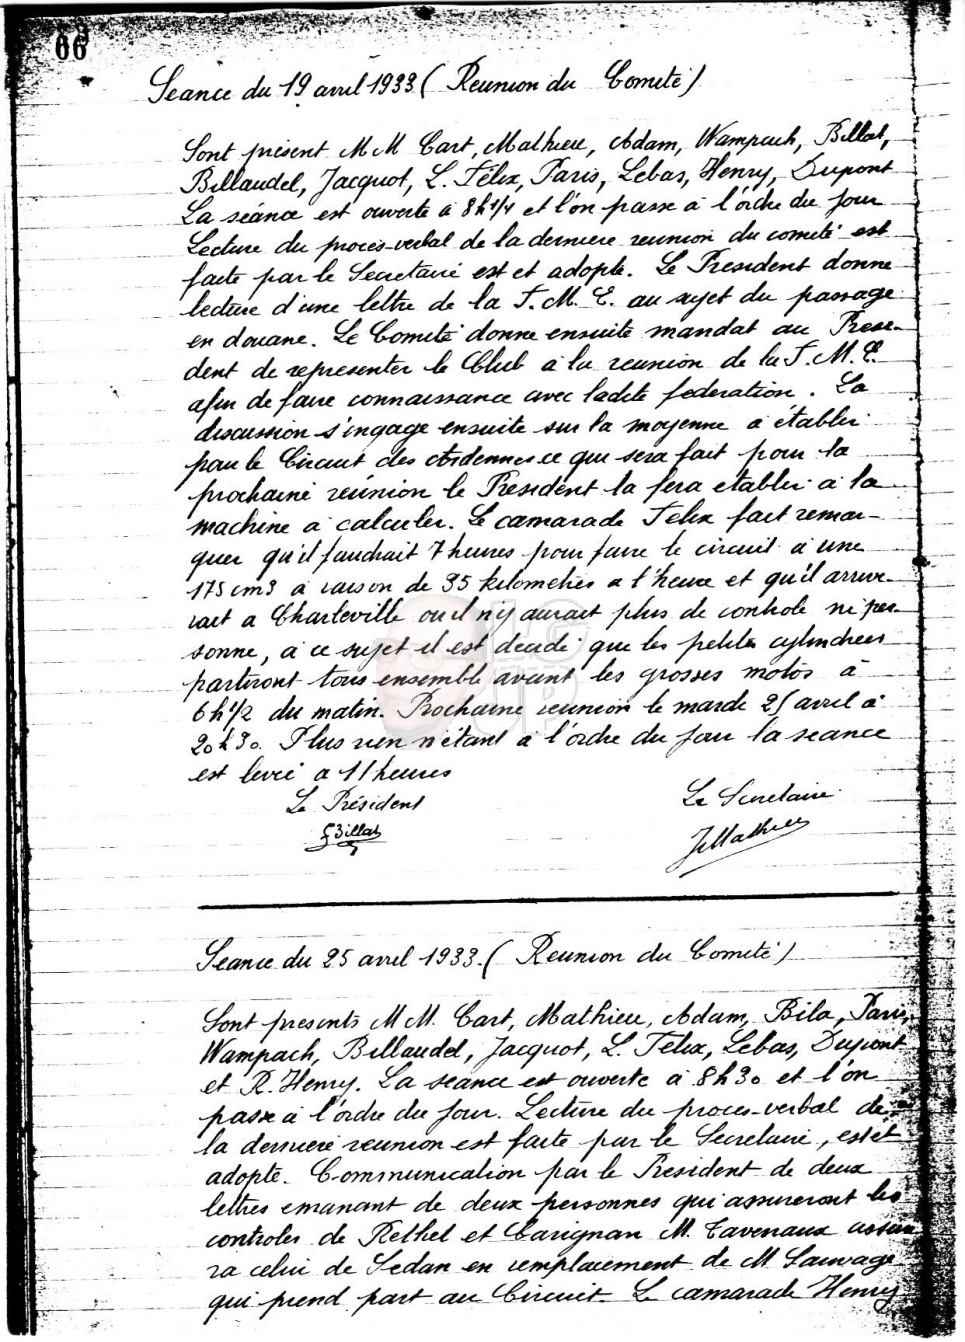 66
Séance du 19 avril 1933 (Reunion du Comité)
Sont présent MM Cart, Mathieu, Adam, Wampach, Billat,
Billaudel, Jacquot, L. Félix, Paris, Lebas, Henry, Dupont
La séance est ouverte à 8h1/4 et l'on passe à l'ordre du jour
Lecture du procès-verbal de la derniere reunion du comité est
faite par le Secretaire est et adopté. Le President donne
lecture d'une lettre de la F.M.E. au sujet du passage
en douane. Le Comité donne ensuite mandat au Prese-
dent de representer le Club à la reunion de la F.M.E.
afin de faire connaissance avec ladite federation. La
discussion s'ingage ensuite sur la moyenne a établir
pour le Circuit des Ardennes ce qui sera fait pour la
prochaine réunion le President la fera etablir à la
machine a calculer. Le camarade Felix fait remar-
quer qu'il faudrait 7 heures pour faire le circuit à une
175 cm3 à raison de 35 kilometres a l'heure et qu'il arrive-
rait a Charleville ou il n'y aurait plus de controle ni per
sonne, a ce sujet il est decidé que les petites cylindrees
partiront tous ensemble avant les grosses motos à
6h1/2 du matin. Prochaine reunion le mardi 25 avril à
20h30. Plus rien n'étant a l'ordre du jour la séance
est levée a 11 heures
Le Président
Le Secretaire
Billat
JMathieu
Séance du 25 avril 1933. (Reunion du Comité)
Sont presents MM. Cart, Mathieu, Adam, Bila, Paris,
Wampach, Billaudel, Jacquot, L. Felix, Lebas, Dupont
et R. Henry. La séance est ouverte à 8h30 et l'on
passe à l'ordre du jour. Lecture du proces-verbal de
la derniere reunion est faite par le Secretaire, est et
adopté. Communication par le President de deux
lettres emanant de deux personnes qui assureront les
controles de Rethel et Carignan M. Tavenaux assu
ra celui de Sedan en remplacement de M Sauvage
qui prend part au Circuit. Le camarade Henry